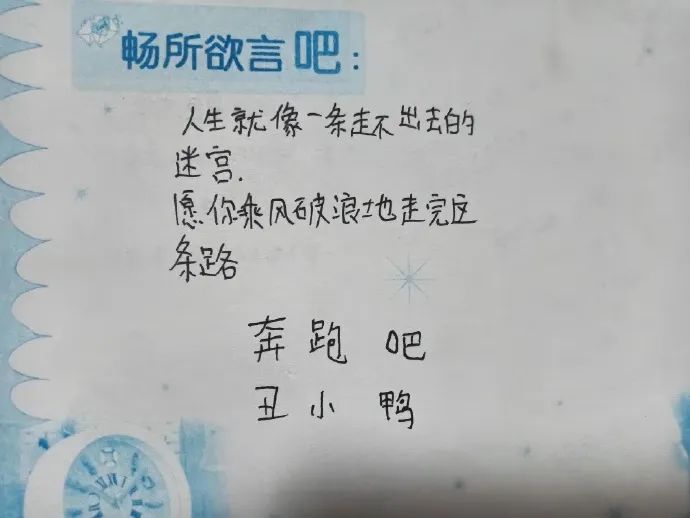 畅所欲言吧：
人生就像一条走不出去的
迷宫.
愿你乘风破浪地走完这
条路
奔跑吧
丑小鸭